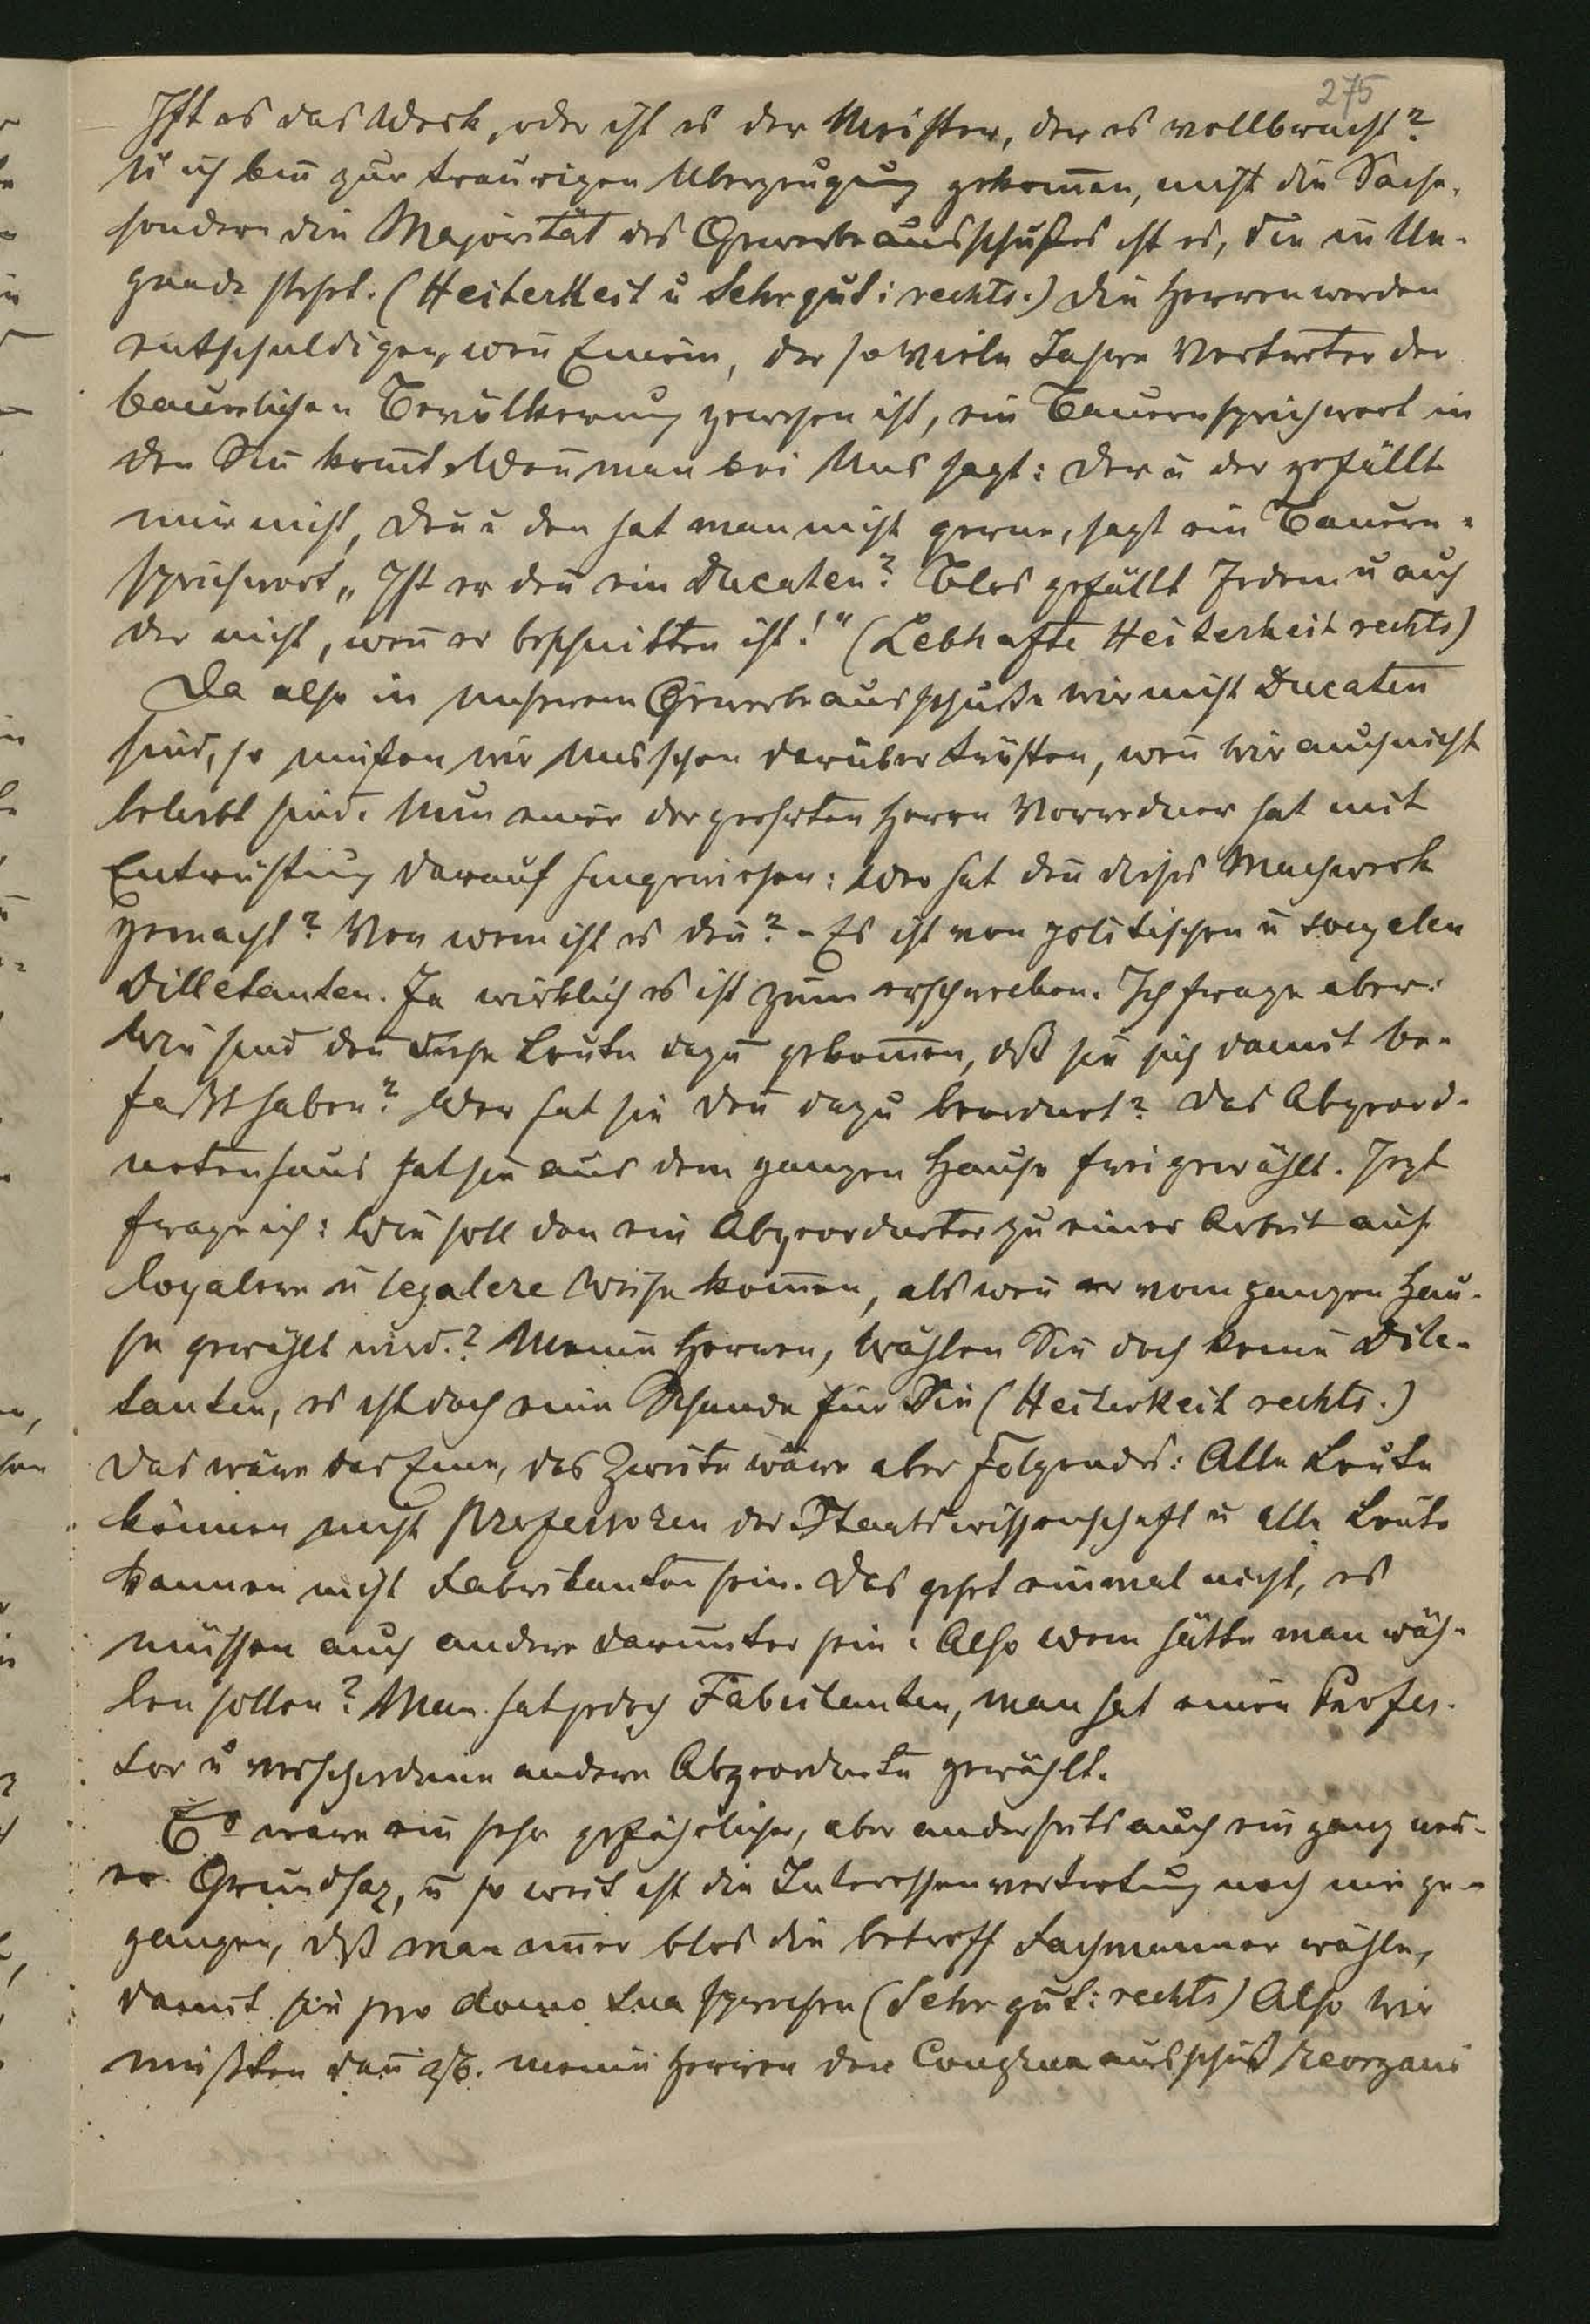 275
Ist es das Werk, oder ist es der Meister, der es vollbracht?
U ich bin zur traurigen Uberzeugung gekom̅en, nicht die Sache,
sondern die Majorität des Gewerbeausschußes ist es, die in Un-
gnade steht. (Heiterkeit u Sehr gut: rechts.) Die Herren werden
entschuldigen, wen̅ Einem, der so viele Jahre Vertreter der
bäuerlichen Bevölkerung gewesen ist, ein Bauernsprichwort in
den Sin̅ kom̅t. Wen̅ man bei Uns sagt: der u der gefällt
mir nicht, den u den hat man nicht gerne, sagt ein Bauern-
sprichwort „Ist er den̅ ein Ducaten? Blos gefällt Jedem u auch
der nicht, wen̅ er beschnitten ist!" (Lebhafte Heiterkeit rechts)
Da also in unserem Gewerbeausschuße wir nicht Ducaten
sind, so müßen wir Uns schon darüber trösten, wen̅ wir auch nicht
beliebt sind. Nun einer der geehrten Herrn Vorredner hat mit
Entrüstung darauf hingewiesen: Wer hat den̅ dieses Machwerk
gemacht? Von wem ist es den̅? - Es ist von politischen u socyalen
Dilletanten. Ja wirklich es ist zum erschrecken. Ich frage aber:
Wie sind den̅ diese Leute dazu gekom̅en, dß sie sich damit be-
faßt haben? Wer hat sie den̅ dazu beordnet? Das Abgeord-
netenhaus hat sie aus dem ganzen Hause frei gewählt. Jezt
frage ich: Wie soll den ein Abgeordneter zu einer Arbeit auf
loyalere u legalere Weise kom̅en, als wen̅ er vom ganzen Hau-
se gewählt wird.? Meine Herren, wählen Sie doch keine Dile-
tanten, es ist doch eine Schande für Sie (Heiterkeit rechts.)
Das wäre das Eine, das Zweite wäre aber Folgendes: Alle Leute
können nicht Professoren der Staatswissenschaft u alle Leute
kannen nicht Fabrikanten sein. Das geht einmal nicht, es
müssen auch andere darunter sein. Also wem hätte man wäh-
len sollen? Man hat jedoch Fabrikanten, man hat einen Profes-
sor u verschiedene andere Abgeordnete gewählt.
Es wäre ein sehr gefährlicher, aber anderseits auch ein ganz neu-
er Grundsaz, u so weit ist die Interessenvertretung noch nie ge-
gangen, dß man im̅er blos die betreff Fachmanner wähle,
damit sie pro domo sua sprechen (Sehr gut: rechts) Also wir
müßten dan̅ zb. meine Herren den Congruaausschuß reorgani